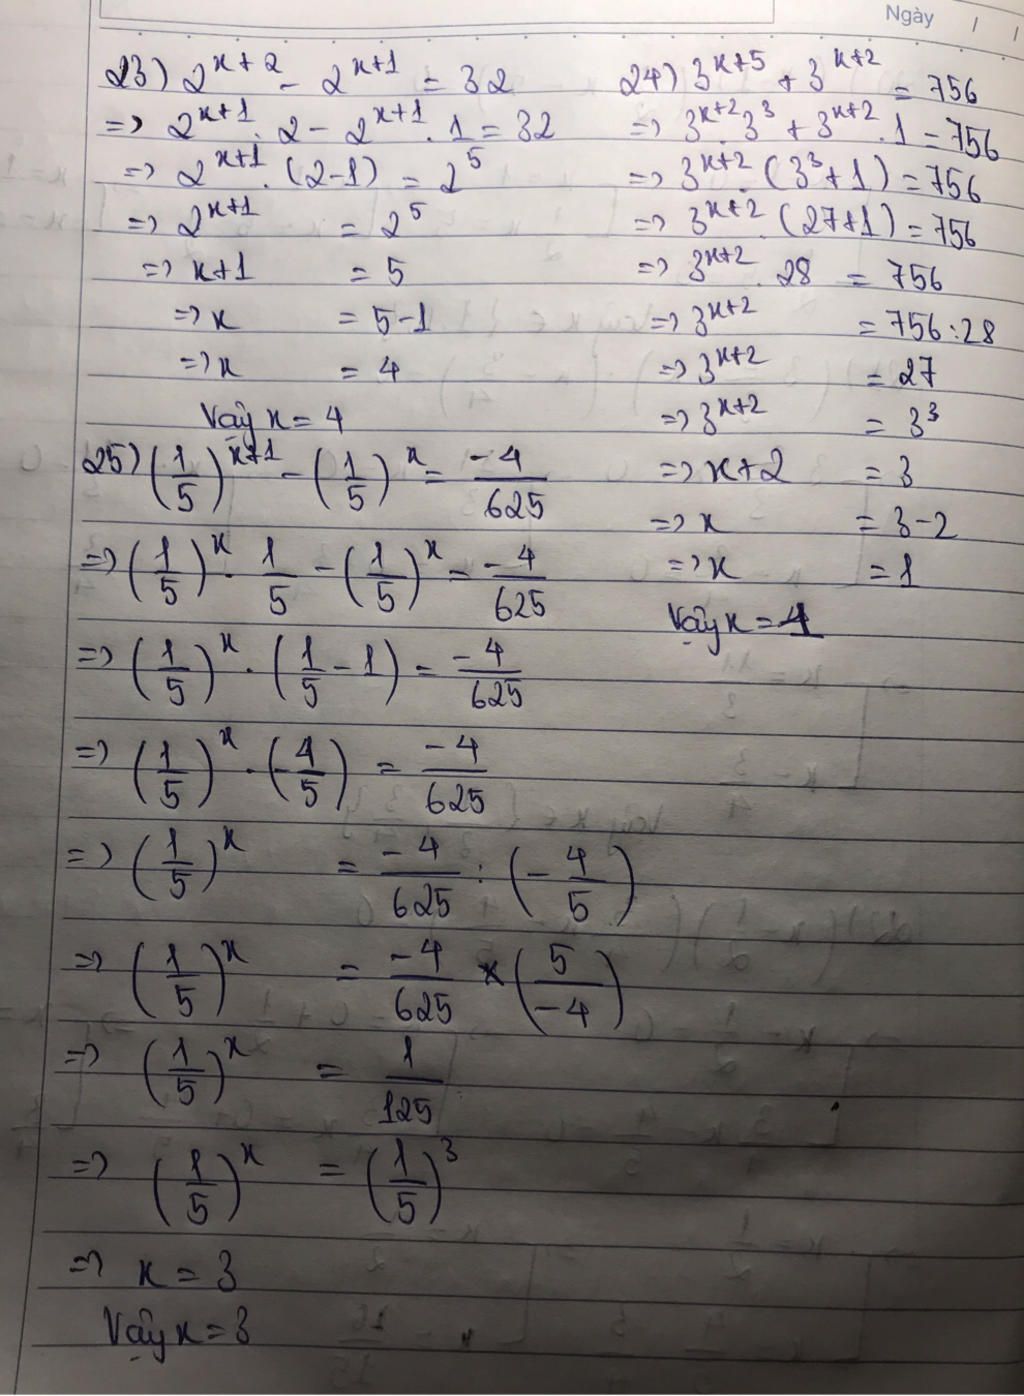 Ngày / /
23) 2^{x+2} - 2^{x+1} = 32
=> 2^{x+1} . 2 - 2^{x+1} . 1 = 32
=> 2^{x+1} . (2-1) = 2^5
=> 2^{x+1} = 2^5
=> x+1 = 5
=> x = 5-1
=> x = 4
Vậy x = 4
24) 3^{x+5} + 3^{x+2} = 756
=> 3^{x+2} . 3^3 + 3^{x+2} . 1 = 756
=> 3^{x+2} . (3^3+1) = 756
=> 3^{x+2} . (27+1) = 756
=> 3^{x+2} . 28 = 756
=> 3^{x+2} = 756 : 28
=> 3^{x+2} = 27
=> 3^{x+2} = 3^3
=> x+2 = 3
=> x = 3-2
=> x = 1
Vậy x = 1
25) (1/5)^{x+1} - (1/5)^x = -4/625
=> (1/5)^x . 1/5 - (1/5)^x = -4/625
=> (1/5)^x . (1/5 - 1) = -4/625
=> (1/5)^x . (-4/5) = -4/625
=> (1/5)^x = -4/625 : (-4/5)
=> (1/5)^x = -4/625 × (5/-4)
=> (1/5)^x = 1/125
=> (1/5)^x = (1/5)^3
=> x = 3
Vậy x = 3